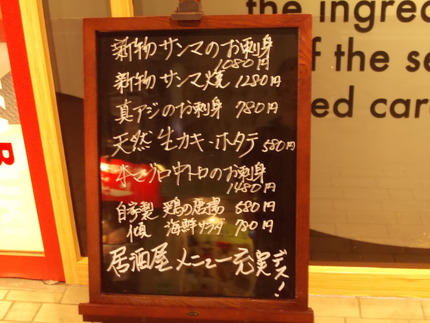 the ingred
f the se
ed car
新物サンマのお刺身
1080円
新物サンマ焼 1280円
真アジのお刺身 780円
天然生カキ・ホタテ 580円
本マグロ中トロのお刺身
1480円
自家製 鶏の 580円
海鮮サラダ 780円
居酒屋メニュー充実デス!